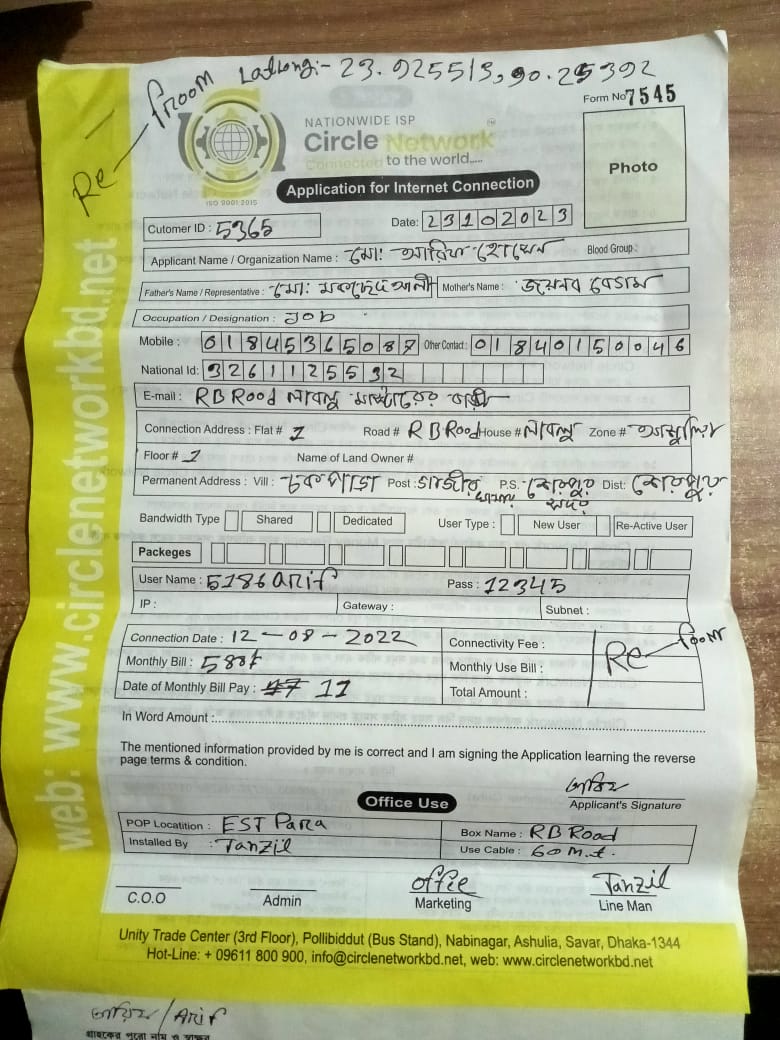 Re-froom Latlong:- 23.925513, 90.25392
Form No 7545
NATIONWIDE ISP
Circle Network
Connected to the world.....
ISO 9001:2015
Photo
Application for Internet Connection
Cutomer ID : 5365 Date: 23102023
Applicant Name / Organization Name : মো: আরিফ হোসেন Blood Group :
Father's Name / Representative : মো: মকছেদ আলী Mother's Name : জয়নব বেগম
Occupation / Designation : Job
Mobile : 01845365087 Other Contact : 01840150046
National Id: 3261125532
E-mail : RB Rood লাবলু মাস্টারের বাড়ী
Connection Address : Flat # 1 Road # RB Rood House # লাবলু Zone # আশুলিয়া
Floor # 1 Name of Land Owner #
Permanent Address : Vill : চকপাড়া Post : গাজীর খামার P.S. : শেরপুর সদর Dist: শেরপুর
Bandwidth Type Shared Dedicated User Type : New User Re-Active User
Packeges
User Name : 5186arif Pass : 12345
IP : Gateway : Subnet :
Connection Date : 12-08-2022 Connectivity Fee :
Re-foom
Monthly Bill : 500/- Monthly Use Bill :
Date of Monthly Bill Pay : 11 Total Amount :
In Word Amount :
The mentioned information provided by me is correct and I am signing the Application learning the reverse
page terms & condition.
আরিফ
Applicant's Signature
Office Use
POP Locatition : EST Para Box Name : RB Road
Installed By : Tanzil Use Cable : 60 m.t.
offie Tanzil
C.O.O Admin Marketing Line Man
Unity Trade Center (3rd Floor), Pollibiddut (Bus Stand), Nabinagar, Ashulia, Savar, Dhaka-1344
Hot-Line: + 09611 800 900, info@circlenetworkbd.net, web: www.circlenetworkbd.net
web: www.circlenetworkbd.net
আরিফ/Arif
গ্রাহকের পুরো নাম ও স্বাক্ষর